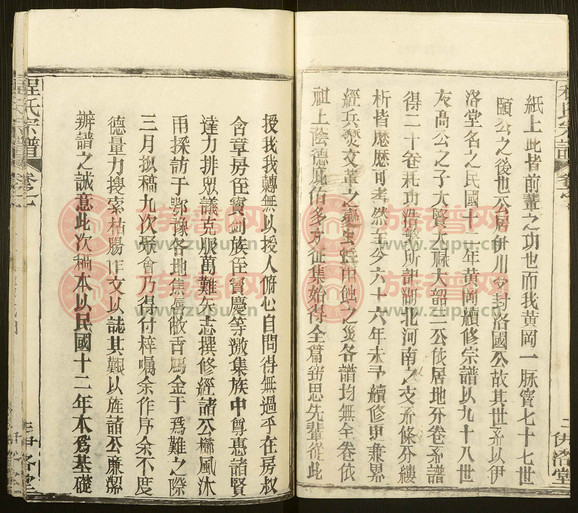 紙上此皆前輩之功也而我黃岡一脉實七十七世
頤公之後也公居伊川令封洛國公故其世系以伊
洛堂名之民國十二年黃岡續修宗譜以九十八世
友高公之子大賢大祿大韶三公依居地分卷系譜
得二十卷耗功浩 所認湖北河南之支系條分縷
析皆歷歷可考然至今六十六年未予續修更兼界
經兵燹文革之 虫蛀 蝕之 各譜均無全卷依
祖上蔭德庇佑多方征集始得全篇 思先輩從此
授我我轉無以授人俯心自問得無過乎在房叔
含章房侄寶 族侄寶慶等邀集族中尊惠諸賢
達力排眾議克服萬難矢志撰修經諸公櫛風沐
雨採訪于鄂豫各地焦唇敝舌馬金于為難之際
三月擬稿九次聚會乃得付梓囑余作序余不度
德量力搜索枯腸作文以誌其艱以旌諸公廉潔
辦譜之誠意此次稿本以民國十二年本為基礎
程氏宗譜
卷之
伊洛堂
程氏宗譜
卷之
伊洛堂
族譜网
www.zupu.cn
族譜网
www.zupu.cn